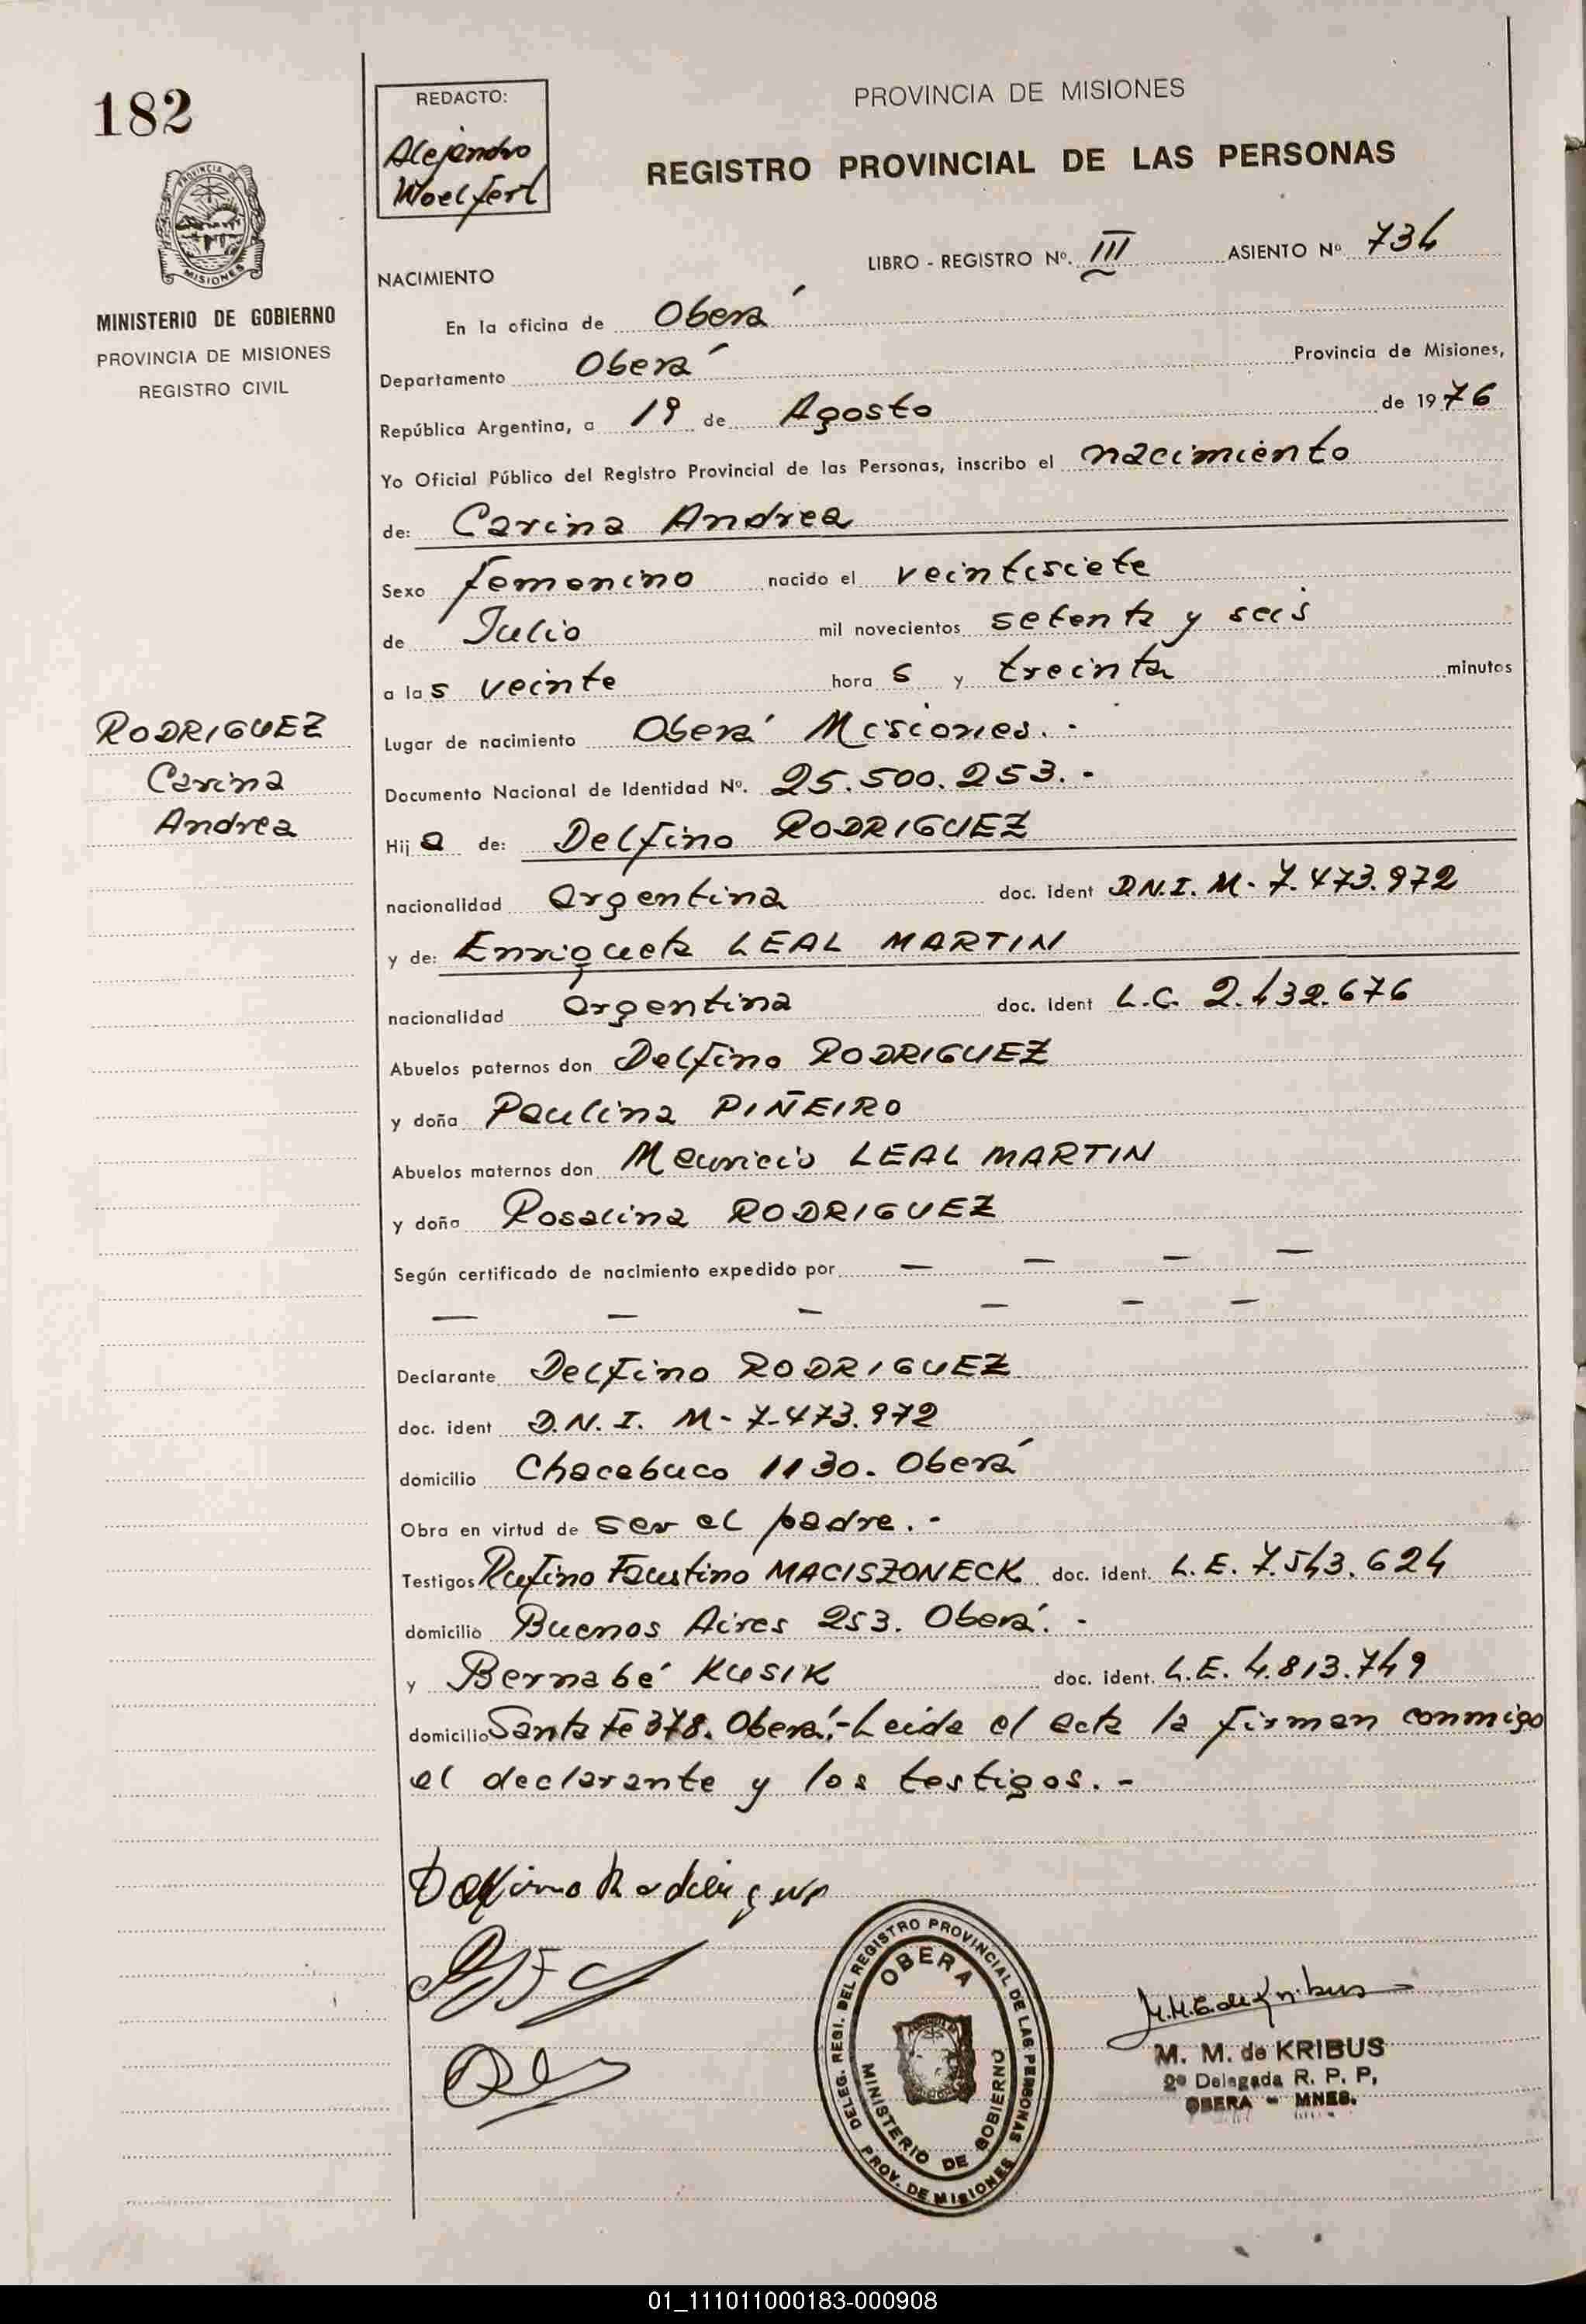 182
REDACTO:
Alejandro
Woelferl
PROVINCIA DE MISIONES
REGISTRO PROVINCIAL DE LAS PERSONAS
PROVINCIA DE
MISIONES
MINISTERIO DE GOBIERNO
PROVINCIA DE MISIONES
REGISTRO CIVIL
LIBRO - REGISTRO Nº. III ASIENTO Nº 734
NACIMIENTO
En la oficina de Oberá
Departamento Oberá Provincia de Misiones,
República Argentina, a 19 de Agosto de 1976
Yo Oficial Público del Registro Provincial de las Personas, inscribo el nacimiento
de: Carina Andrea
Sexo femenino nacido el veintisiete
de Julio mil novecientos setenta y seis
a las veinte hora s y treinta minutos
RODRIGUEZ
Carina
Andrea
Lugar de nacimiento Oberá Misiones. -
Documento Nacional de Identidad Nº. 25.500.253. -
Hij a de: Delfino RODRIGUEZ
nacionalidad argentina doc. ident D.N.I. M- 7.473.972
y de: Enriqueta LEAL MARTIN
nacionalidad argentina doc. ident L.C. 2.432.676
Abuelos paternos don Delfino RODRIGUEZ
y doña Paulina PIÑEIRO
Abuelos maternos don Mauricio LEAL MARTIN
y doña Rosalina RODRIGUEZ
Según certificado de nacimiento expedido por — — — —
— — — — — —
Declarante Delfino RODRIGUEZ
doc. ident D.N.I. M- 7.473.972
domicilio Chacabuco 1130. Oberá
Obra en virtud de ser el padre. -
Testigos Rufino Faustino MACISZONECK doc. ident. L.E. 7.543.624
domicilio Buenos Aires 253. Oberá. -
y Bernabé KUSIK doc. ident. L.E. 4.813.749
domicilio Santa Fe 378. Oberá.- Leida el acta la firman conmigo
el declarante y los testigos. -
Delfino Rodriguez
DELEG. REGI. DEL REGISTRO PROVINCIAL DE LAS PERSONAS
OBERA
MINISTERIO DE GOBIERNO
PROV. DE MISIONES
M. M. de KRIBUS
2º Delegada R. P. P,
OBERA - MNES.
01_111011000183-000908